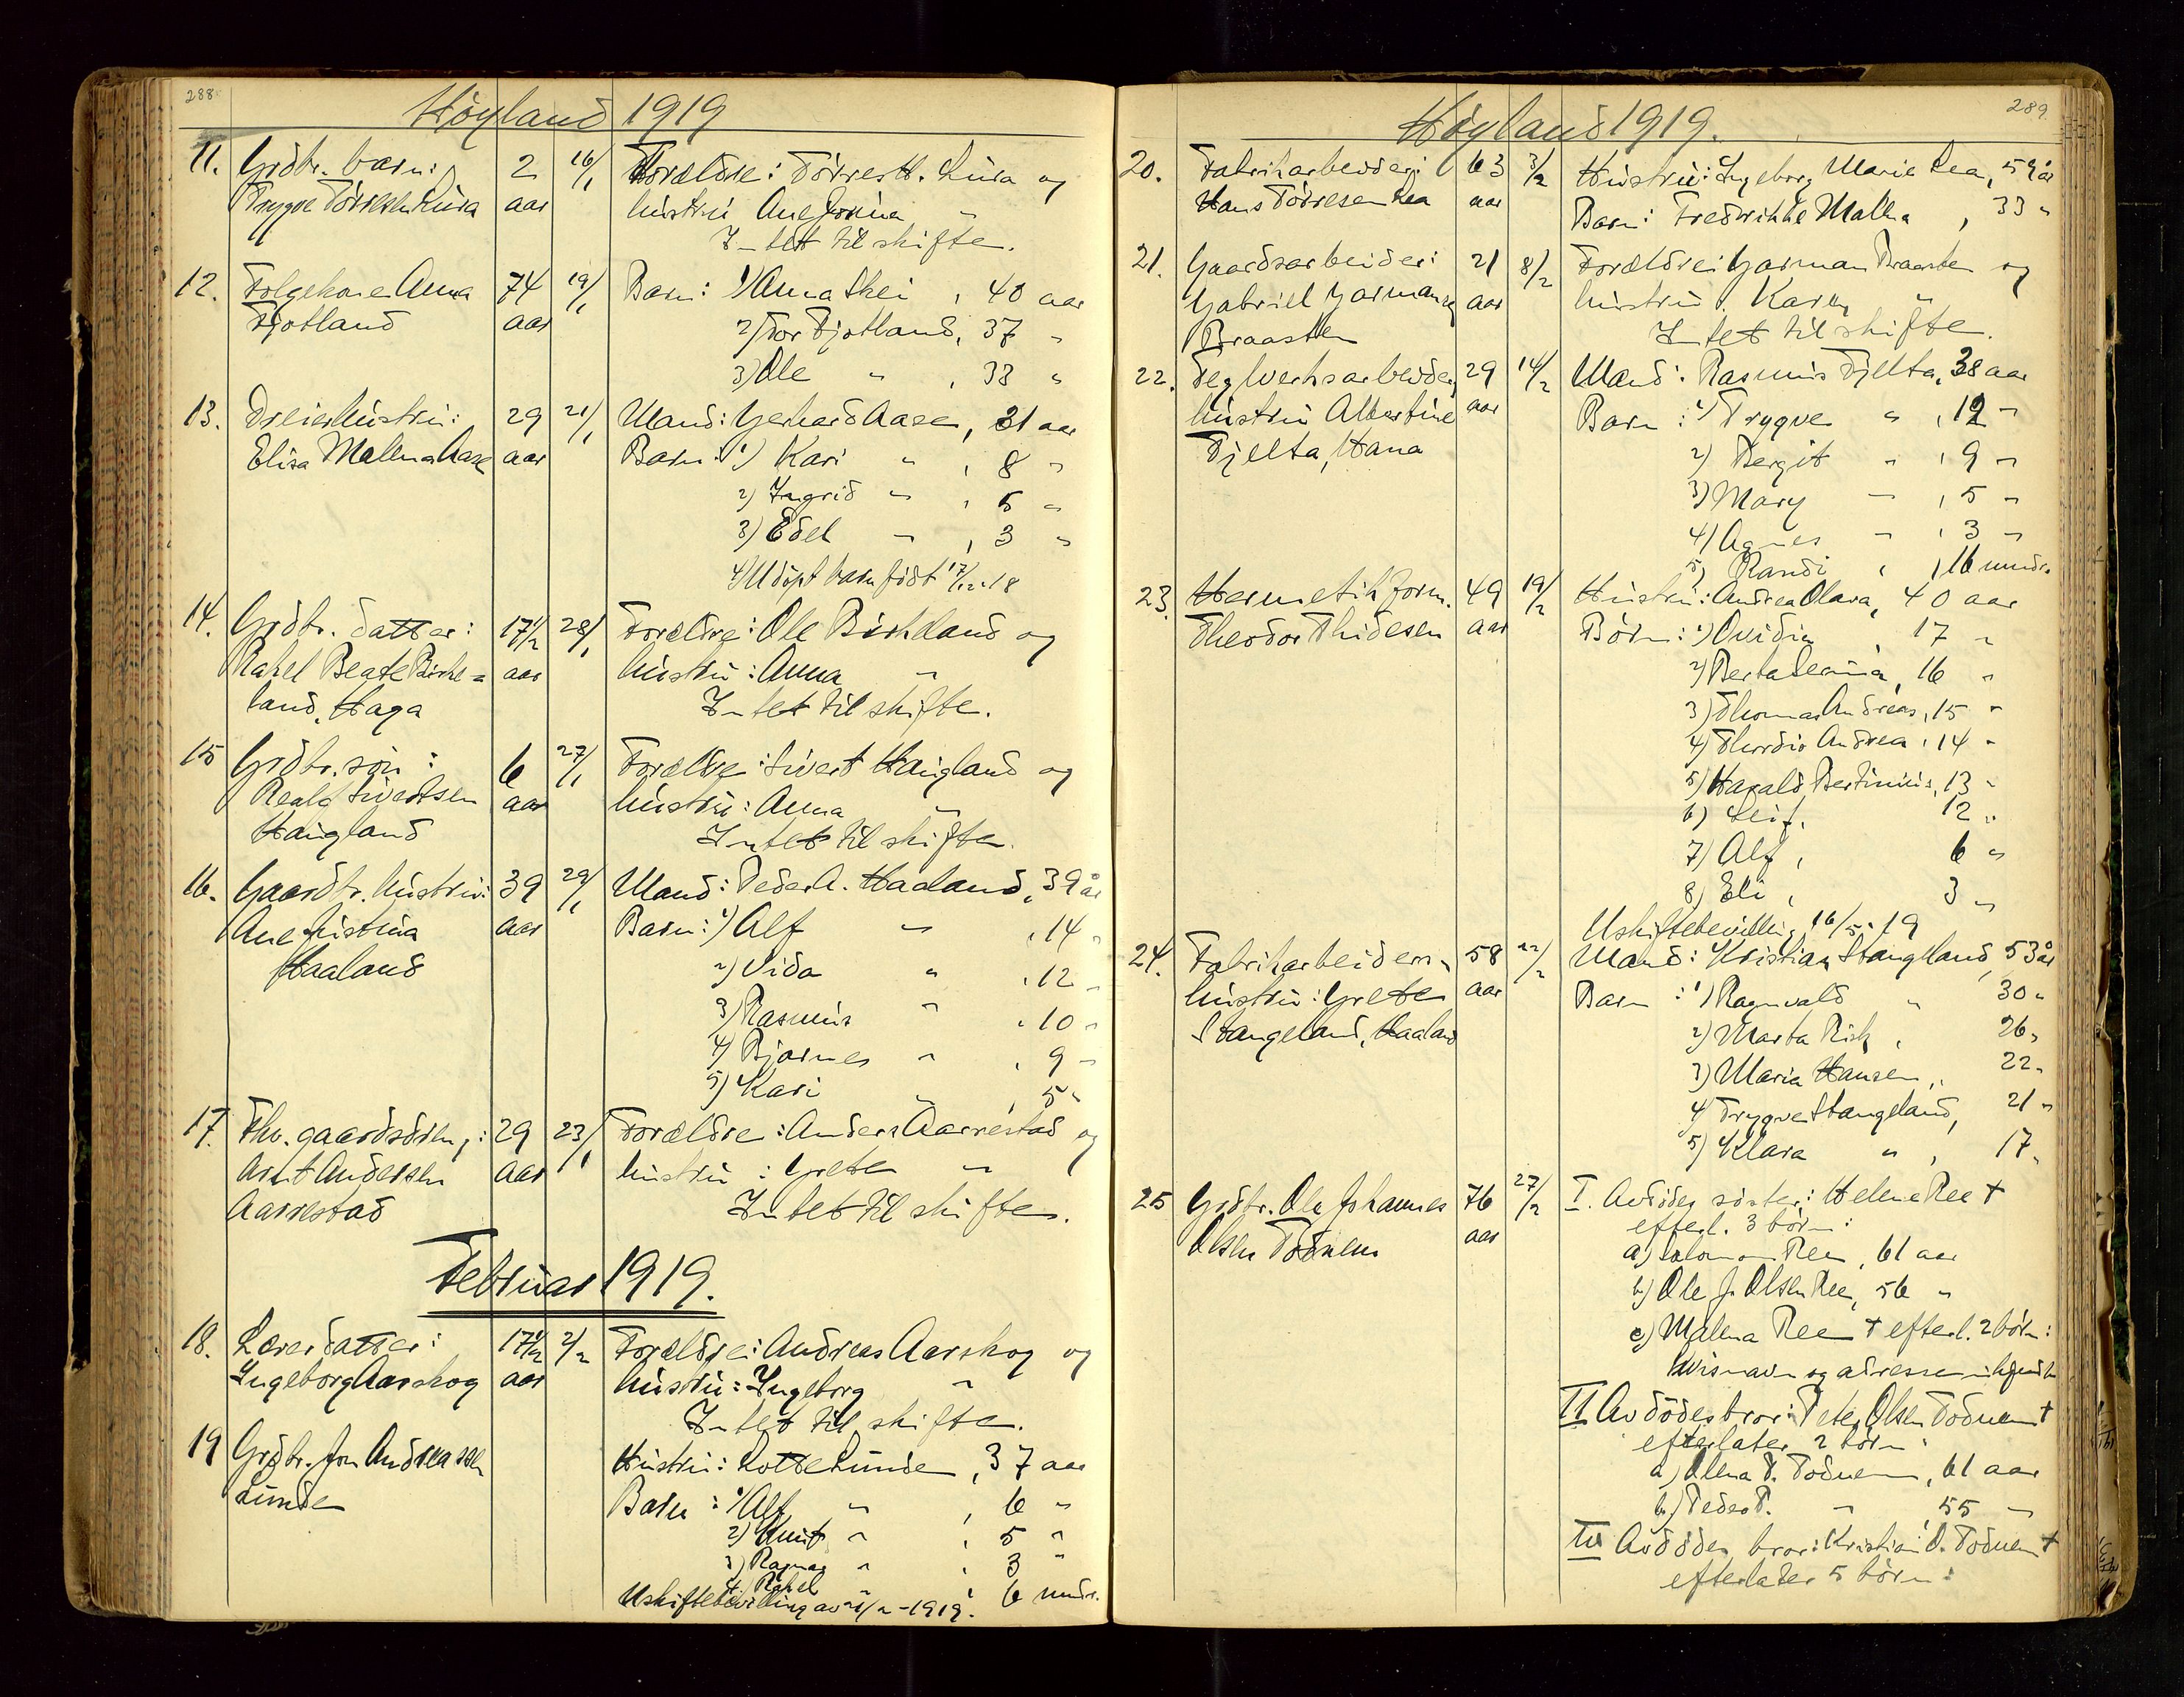 288
Høyland 1919
11. Grdbr. barn: 2 16/1 Forældre: Tørres H. Lura og
Trygve Tørresen Lura aar hustru Ane Jonina "
Intet til skifte.
12. Folgekone Anna 74 19/1 Barn: 1) Anna Skei , 40 aar
Fjotland aar 2) Tor Fjotland, 37 "
3) Ole " , 33 "
13. Dreierhustru: 29 21/1 Mand: Gerhard Aase, 31 aar
Elisa Malena Aase aar Barn: 1) Kari " , 8 "
2) Ingrid " , 5 "
3) Edel " , 3 "
4) Udøpt barn født 17/12-18
14. Grdbr. datter: 17 1/2 28/1 Forældre: Ole Birkeland og
Rakel Beate Birke= aar hustru: Anna "
land, Haga Intet til skifte.
15 Grdbr. søn: 6 27/1 Forældre: Sivert Haugland og
Sivertsen aar hustru: Anna "
Haugland Intet til skifte.
16. Gaardbr. hustru: 39 29/1 Mand: Peder A. Haaland, 39 år
Ane Kistina aar Barn: 1) Alf " , 14 "
Haaland 2) Vida " , 12 "
3) Rasmus " , 10 "
4) Bjarnes " , 9 "
5) Kari " , 5 "
17. Fhv. gaardsdreng: 29 23/1 Forældre: Anders Aarrestad og
Arnt Andersen aar hustru: Grete "
Aarrestad Intet til skifte.
Februar 1919.
18. Lærerdatter: 17 1/2 2/2 Forældre: Andreas Aarskog og
Ingeborg Aarskog aar hustru: Ingeborg "
Intet til skifte.
19 Grdbr. Jon Andreassen Hustru: Lotte Lunde, 37 aar
Lunde Barn: 1) Alf " , 6 "
2) Knut " , 5 "
3) Ragnar " , 3 "
4) Rakel , 6 mndr.
Uskiftebevilling av /2-1919.
289
Høyland 1919.
20. Fabrikarbeider: 63 3/2 Hustru: Ingeborg Marie Lea, 59 år
Hans Tørresen Lea aar Barn: Fredrikke Malena , 33 "
21. Gaardsarbeider: 21 8/2 Forældre: Garman Braasten og
Gabriel Garmansen aar hustru: Karen "
Braasten Intet til skifte.
22. Teglverksarbeider 29 14/2 Mand: Rasmus Fjelta, 38 aar
hustru Albertine aar Barn: 1) Trygve " , 12 "
Fjelta, Hana 2) Bergit " , 9 "
3) Mary " , 5 "
4) Agnes " , 3 "
5) Randi , 16 mndr.
23. Hermetikform. 49 19/2 Hustru: Andrea Olava, 40 aar
Theodor Thidesen aar Børn: 1) Ovidia 17 "
2) Berta Serina, 16 "
3) Thomas Andreas, 15 "
4) Thordis Andrea, 14 "
5) Harald Bertinius, 13 "
6) Leif, 12 "
7) Alf, 6 "
8) Eli, 3 "
Uskiftebevilling 16/5-19
24. Fabrikarbeiders 58 22/2 Mand: Kristian Stangeland, 53 år
hustru: Grete aar Barn: 1) Ragnvald " 30 "
Stangeland, Haaland 2) Marta Risk, 26 "
3) Maria Hansen, 22 "
4) Trygve Stangeland, 21 "
5) Klara " , 17 "
25 Grdbr. Ole Johannes 76 27/2 I. Avdødes søster: Helene Ree †
Olsen Todnem aar efterl. 3 børn:
a) Salomon Ree, 61 aar
b) Ole J. Olsen Ree, 56 "
c) Malena Ree † efterl. 2 børn:
hvis navn og adresser
II Avdødes bror: Peter Olsen Todnem †
efterlater 2 børn:
a) Olena P. Todnem, 61 aar
b) Peder P. " , 55 "
III Avdødes bror: Kristian O. Todnem †
efterlater 5 børn: